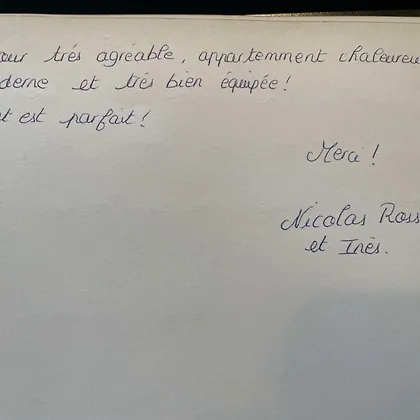 our très agréable, appartemment chaleureu
derne et très bien équipée!
t est parfait!
Merci!
Nicolas Ross
et Inès.